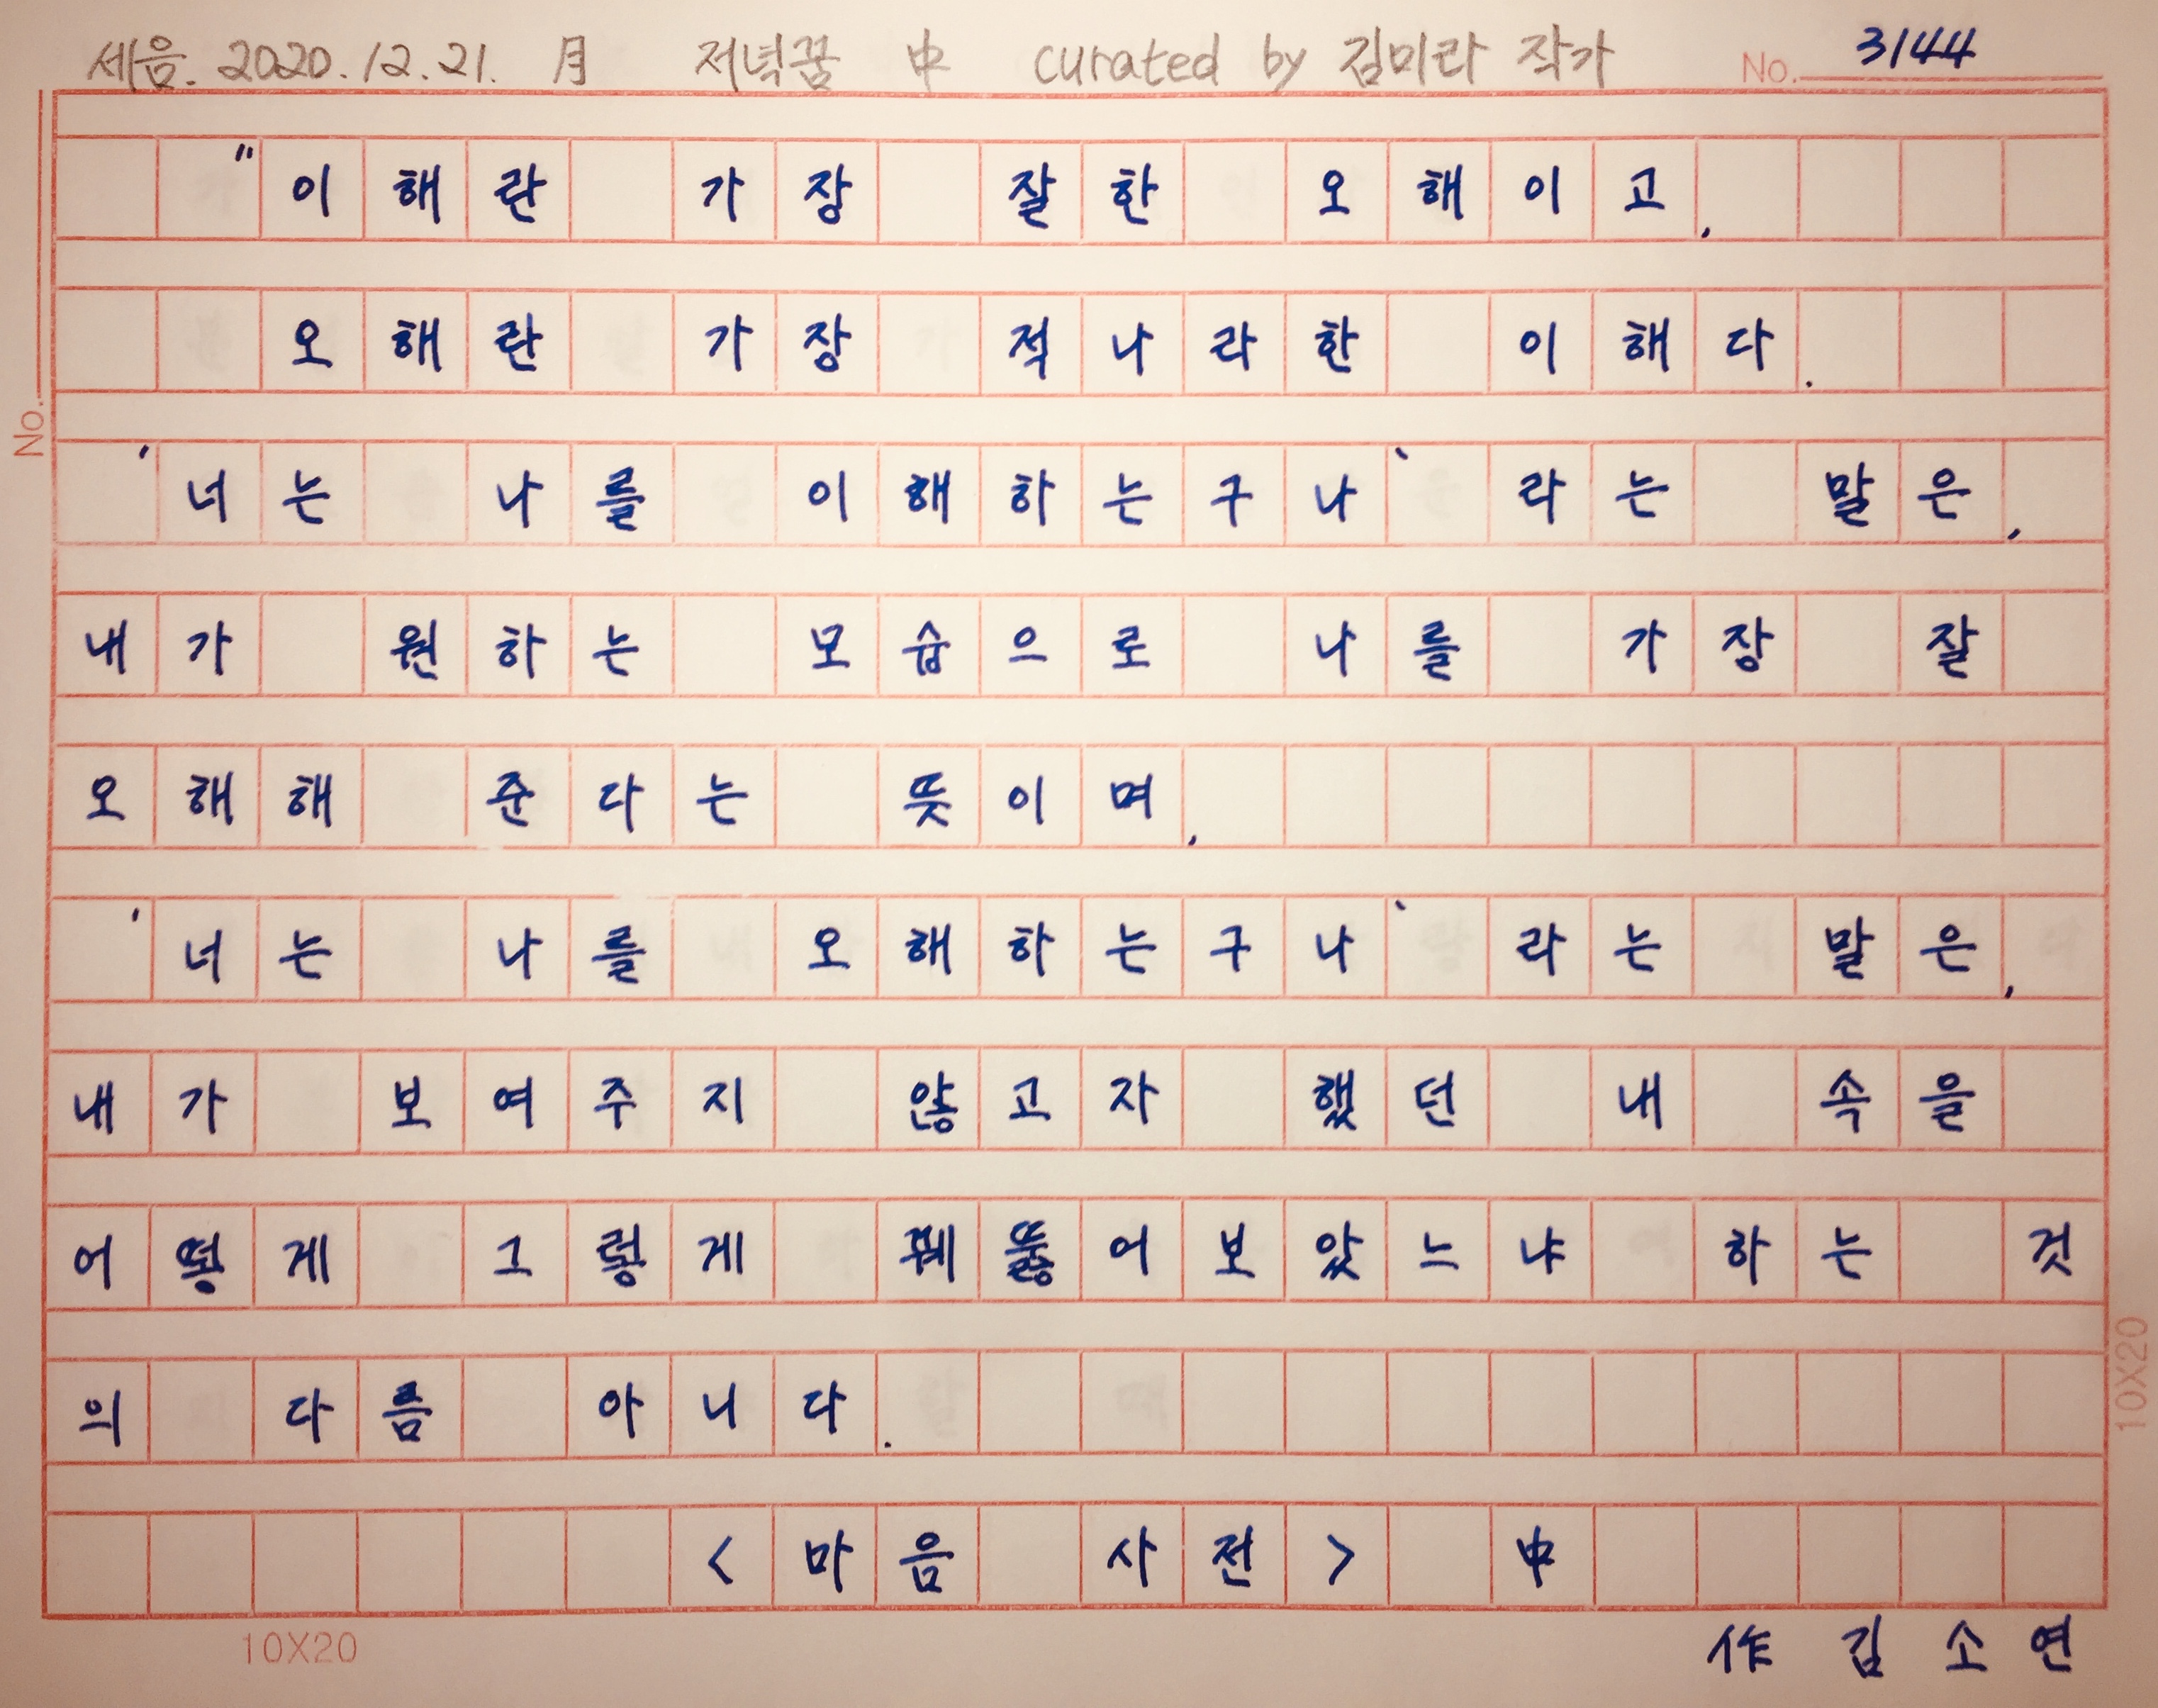 세음. 2020.12.21. 月 저녁꿈 中 curated by 김미라 작가 No. 3144
"이해란 가장 잘한 오해이고,
오해란 가장 적나라한 이해다.
'너는 나를 이해하는구나' 라는 말은,
내가 원하는 모습으로 나를 가장 잘
오해해 준다는 뜻이며,
'너는 나를 오해하는구나' 라는 말은,
내가 보여주지 않고자 했던 내 속을
어떻게 그렇게 꿰뚫어보았느냐 하는 것
의 다름 아니다.
<마음 사전> 中
作 김소연
No.
10X20
10X20